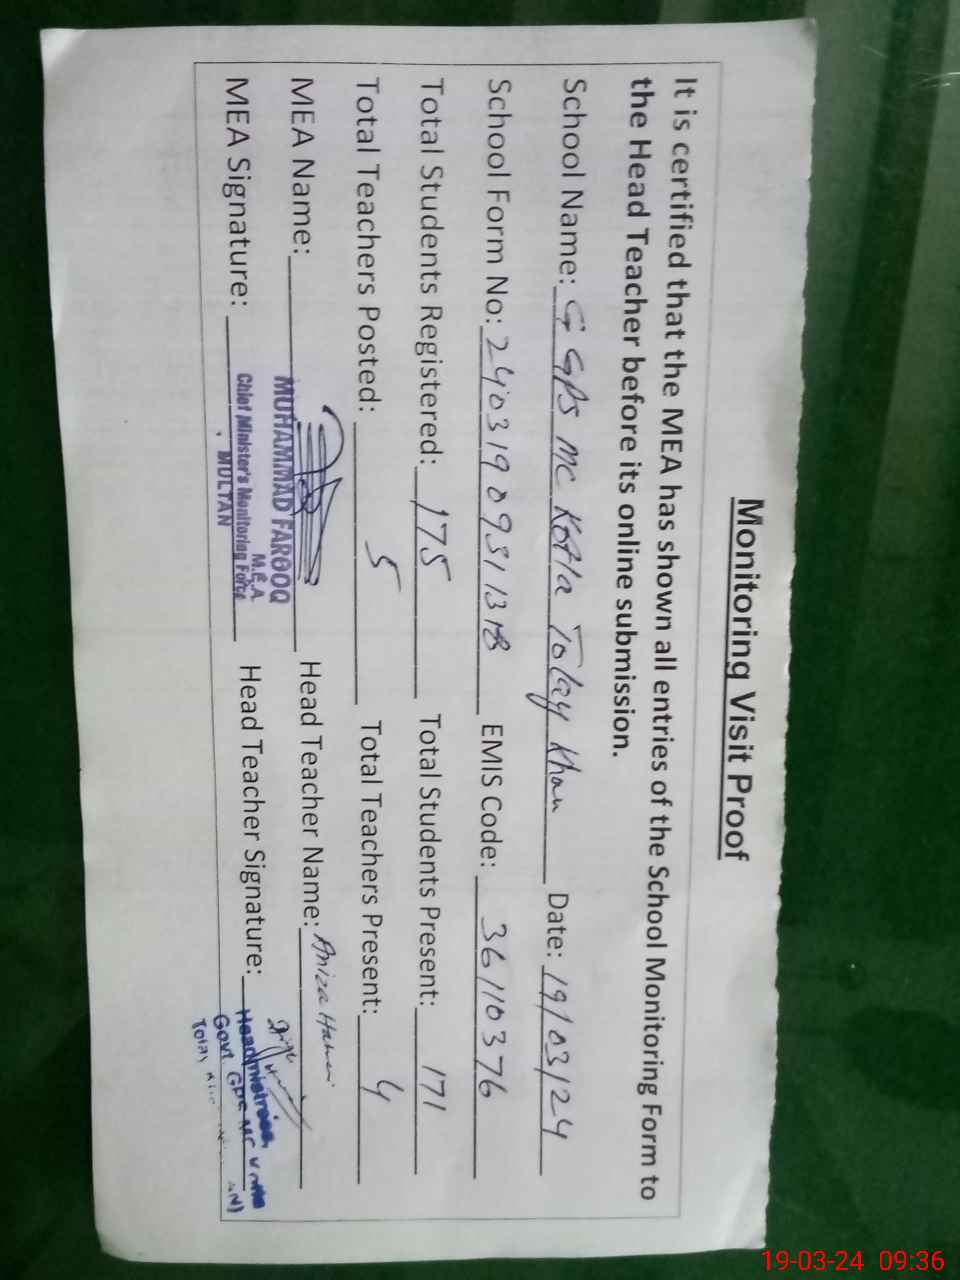 Monitoring Visit Proof
It is certified that the MEA has shown all entries of the School Monitoring Form to
the Head Teacher before its online submission.
School Name: G GPS MC Kotla Tolay Khan Date: 19/03/24
School Form No: EMIS Code: 36110376
Total Students Registered: 175 Total Students Present: 171
Total Teachers Posted: 5 Total Teachers Present: 4
MEA Name: Head Teacher Name: Aniza
MUHAMMAD FAROOQ
M.E.A
Chief Minister's Monitoring Force
MULTAN
MEA Signature: Head Teacher Signature:
Headmistress,
Govt. GPS MC Kotla
Tolay
19-03-24 09:36